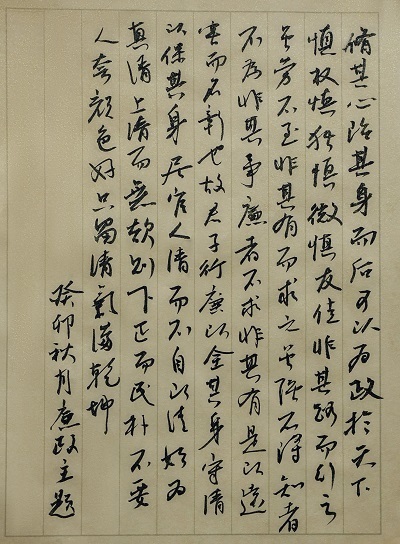 脩其心治其身而后可以為政於天下
慎权慎独慎微慎友佳非其路而行之
虽劳不至非其有而求之虽强不得知者
不为非其事廉者不求非其有是以远
害而名彰也故君子行廉以全其身守清
以保其身居官人清而不自以清始为
真清上清而无欲则下正而民朴不要
人夸颜色好只留清氣满乾坤
癸卯秋月廉政主题